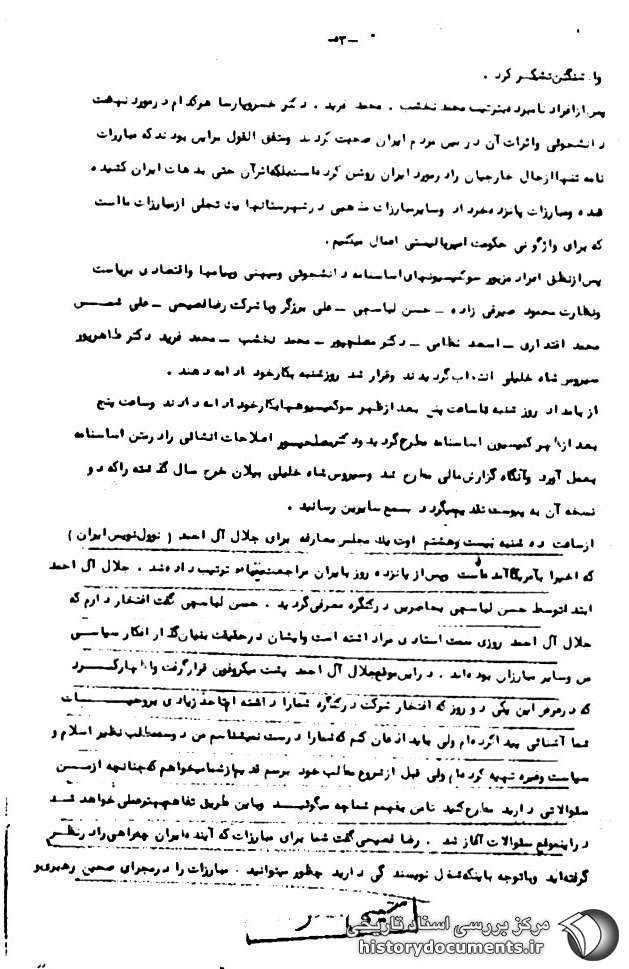 -۵۳-
واشنگتن تشکر کرد .
پس از افراد نامبرده بترتیب محمد نخشب . محمد فرید . دکتر خسرو پارسا هرکدام در مورد نهضت
دانشجوئی واثرات آن در بین مردم ایران صحبت کردند ومتفق القول براین بودند که مبارزات
نامه تنها اذهال خارجیان را در مورد ایران روشن کرده است بلکه اثرآن حتی بدهات ایران کشیده
شده ومبارزات پانزده خرداد وسایر مبارزات مذهبی در شهرستانها یک تجلی از مبارزات ما است
که برای واژگونی حکومت امپریالیستی اعمال میکنیم .
پس از نطق افراد مزبور سوکمیسیونهای اساسنامه دانشجوئی ومیهنی وپیامها واقتصادی بریاست
ونظارت محمود صیرفی زاده - حسن لباسچی - علی برزگر وبا شرکت رضا فصیحی - علی شمس
محمد اقتداری - اسعد نظامی - دکتر مصلحپور - محمد نخشب - محمد فرید دکتر طاهرپور
سیروس شاه خلیلی انتخاب گردیدند وقرار شد روز شنبه بکار خود ادامه دهند .
از بامداد روز شنبه تا ساعت پنج بعد از ظهر سوکمیسیونها بکار خود ادامه دادند وساعت پنج
بعد از ظهر کمیسیون اساسنامه مطرح گردید ودکتر مصلحپور اصلاحات انشائی را در متن اساسنامه
بعمل آورد وآنگاه گزارش مالی مطرح شد وسیروس شاه خلیلی بیلان خرج سال گذشته را که دو
نسخه آن به پیوست تقدیم میگردد بسمع سایرین رسانید .
از ساعت ده شنبه بیست وهشتم اوت یک مجلس معارفه برای جلال آل احمد ( نوول نویس ایران )
که اخیرا بآمریکا آمده است وپس از پانزده روز بایران مراجعت مینماید ترتیب داده شد . جلال آل احمد
ابتدا توسط حسن لباسچی بحاضرین در کنگره معرفی گردید . حسن لباسچی گفت افتخار دارم که
جلال آل احمد روزی سمت استادی مرا داشته است وایشان در حقیقت بنیان گذار افکار سیاسی
من وسایر مبارزان بوده اند . در این موقع جلال آل احمد پشت میکروفون قرار گرفت واظهار کرد
که در عرض این یکی دو روز که افتخار شرکت در کنگره شما را داشته ام تا حد زیادی بروحیات
شما آشنائی پیدا کرده ام ولی باید اذعان کنم که شما را درست نمیشناسم من دو سه مطلب نظیر اسلام و
سیاست وغیره تهیه کرده ام ولی قبل از شروع مطالب خود برسم قدیم از شما میخواهم که چنانچه از من
سئوالاتی دارید مطرح کنید تا من بفهم شما چه میگوئید وباین طریق تفاهم بهتر عملی خواهد شد
در اینموقع سئوالات آغاز شد . رضا فصیحی گفت شما برای مبارزات که آینده ایران چه راهی را در نظر
گرفته اید وباتوجه باینکه شغل نویسندگی دارید چطور میتوانید . مبارزات را در مجرای صحیح رهبری و
مرکز بررسی اسناد تاریخی
historydocuments.ir